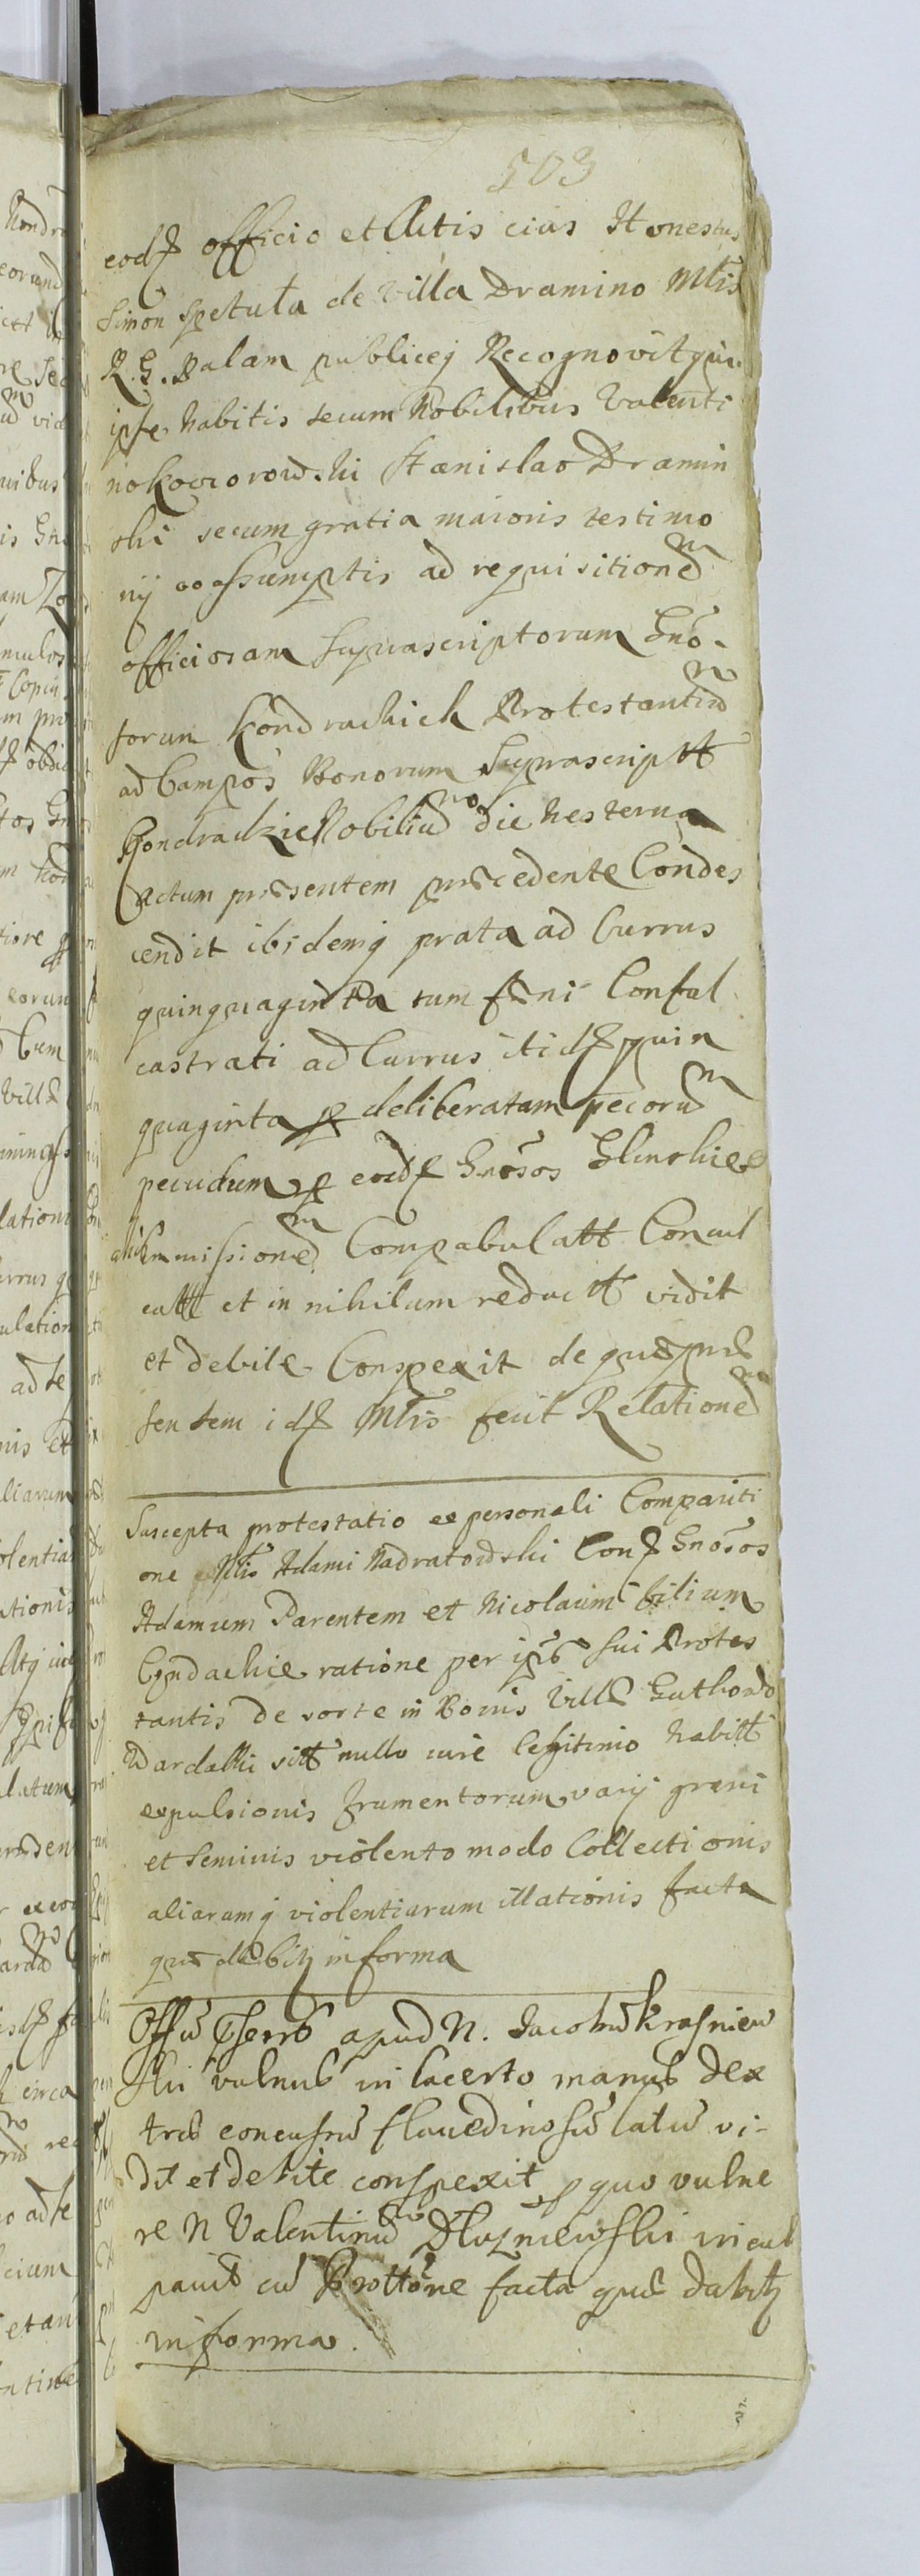 503
eodē officio et Actis eius Honestus
Simon Spetuła de Villa Dramino Mlis
R. G. Palam publiceq Recognovit quia
ipse habitis secum Nobilibus Valenti
no Stanislao Dramin
ski secum gratia maioris testimo
nij assumptis ad requisitionem
officiosam Suprascriptorum Gnō-
sorum Kondrackich Protestantium
ad Campos Bonorum Suprascriptt
Kondradzie Nobilium die hesterna
Actum præsentem præcedente Condes
cendit ibidemq prata ad Currus
quinquaginta tum fæni Confal
castrati ad Currus itidē quin
quaginta p deliberatam pecorum
pecudum p eosdē Gnōsos Glinskie
Immissionem Compabulatt Concul
catt et in nihilum redactt vidit
et debite Conspexit de quo præ
sentem idē Mlis fecit Relationem
Suscepta protestatio ex personali Compariti
one Mlis Adami Nadratowski Con Gnōsos
Adamum Parentem et Nicolaum filium
ratione per ipsos sui Protes
tantis de sorte in Bonis Villæ Guthowo
Wardałki sitt nullo iure legitimo habitt
expulsionis frumentorum varij grani
et seminis violento modo Collectionis
aliarumq violentiarum illationis facta
quæ dabitq in forma
Offm apud N. Jacobum Krasniew
ski vulnus in lacerto manus dex
træ concussum flavedinosum latum vi-
dit et debite conspexit p quo vulne
re N Valentinum Dłuzniewski incul
pavit cum Prottōne facta quæ dabitq
in forma.